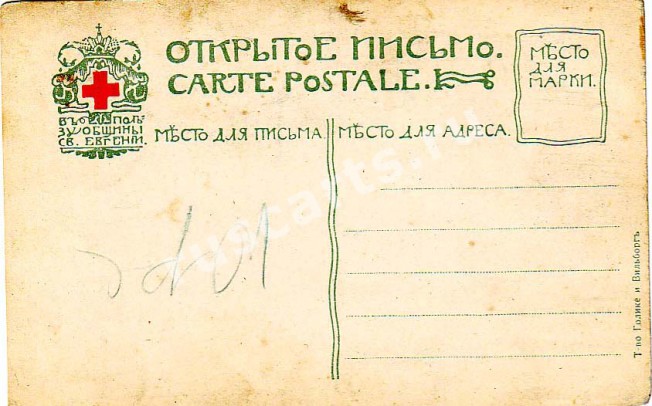 ОТКРЫТОЕ ПИСЬМО.
CARTE POSTALE.
МѢСТО
ДЛЯ
МАРКИ.
ВЪ ПОЛЬ
ЗУ ОБЩИНЫ
СВ. ЕВГЕНІИ.
МѢСТО ДЛЯ ПИСЬМА.
МѢСТО ДЛЯ АДРЕСА.
ruscarts.ru
Т-во Голике и Вильборгъ